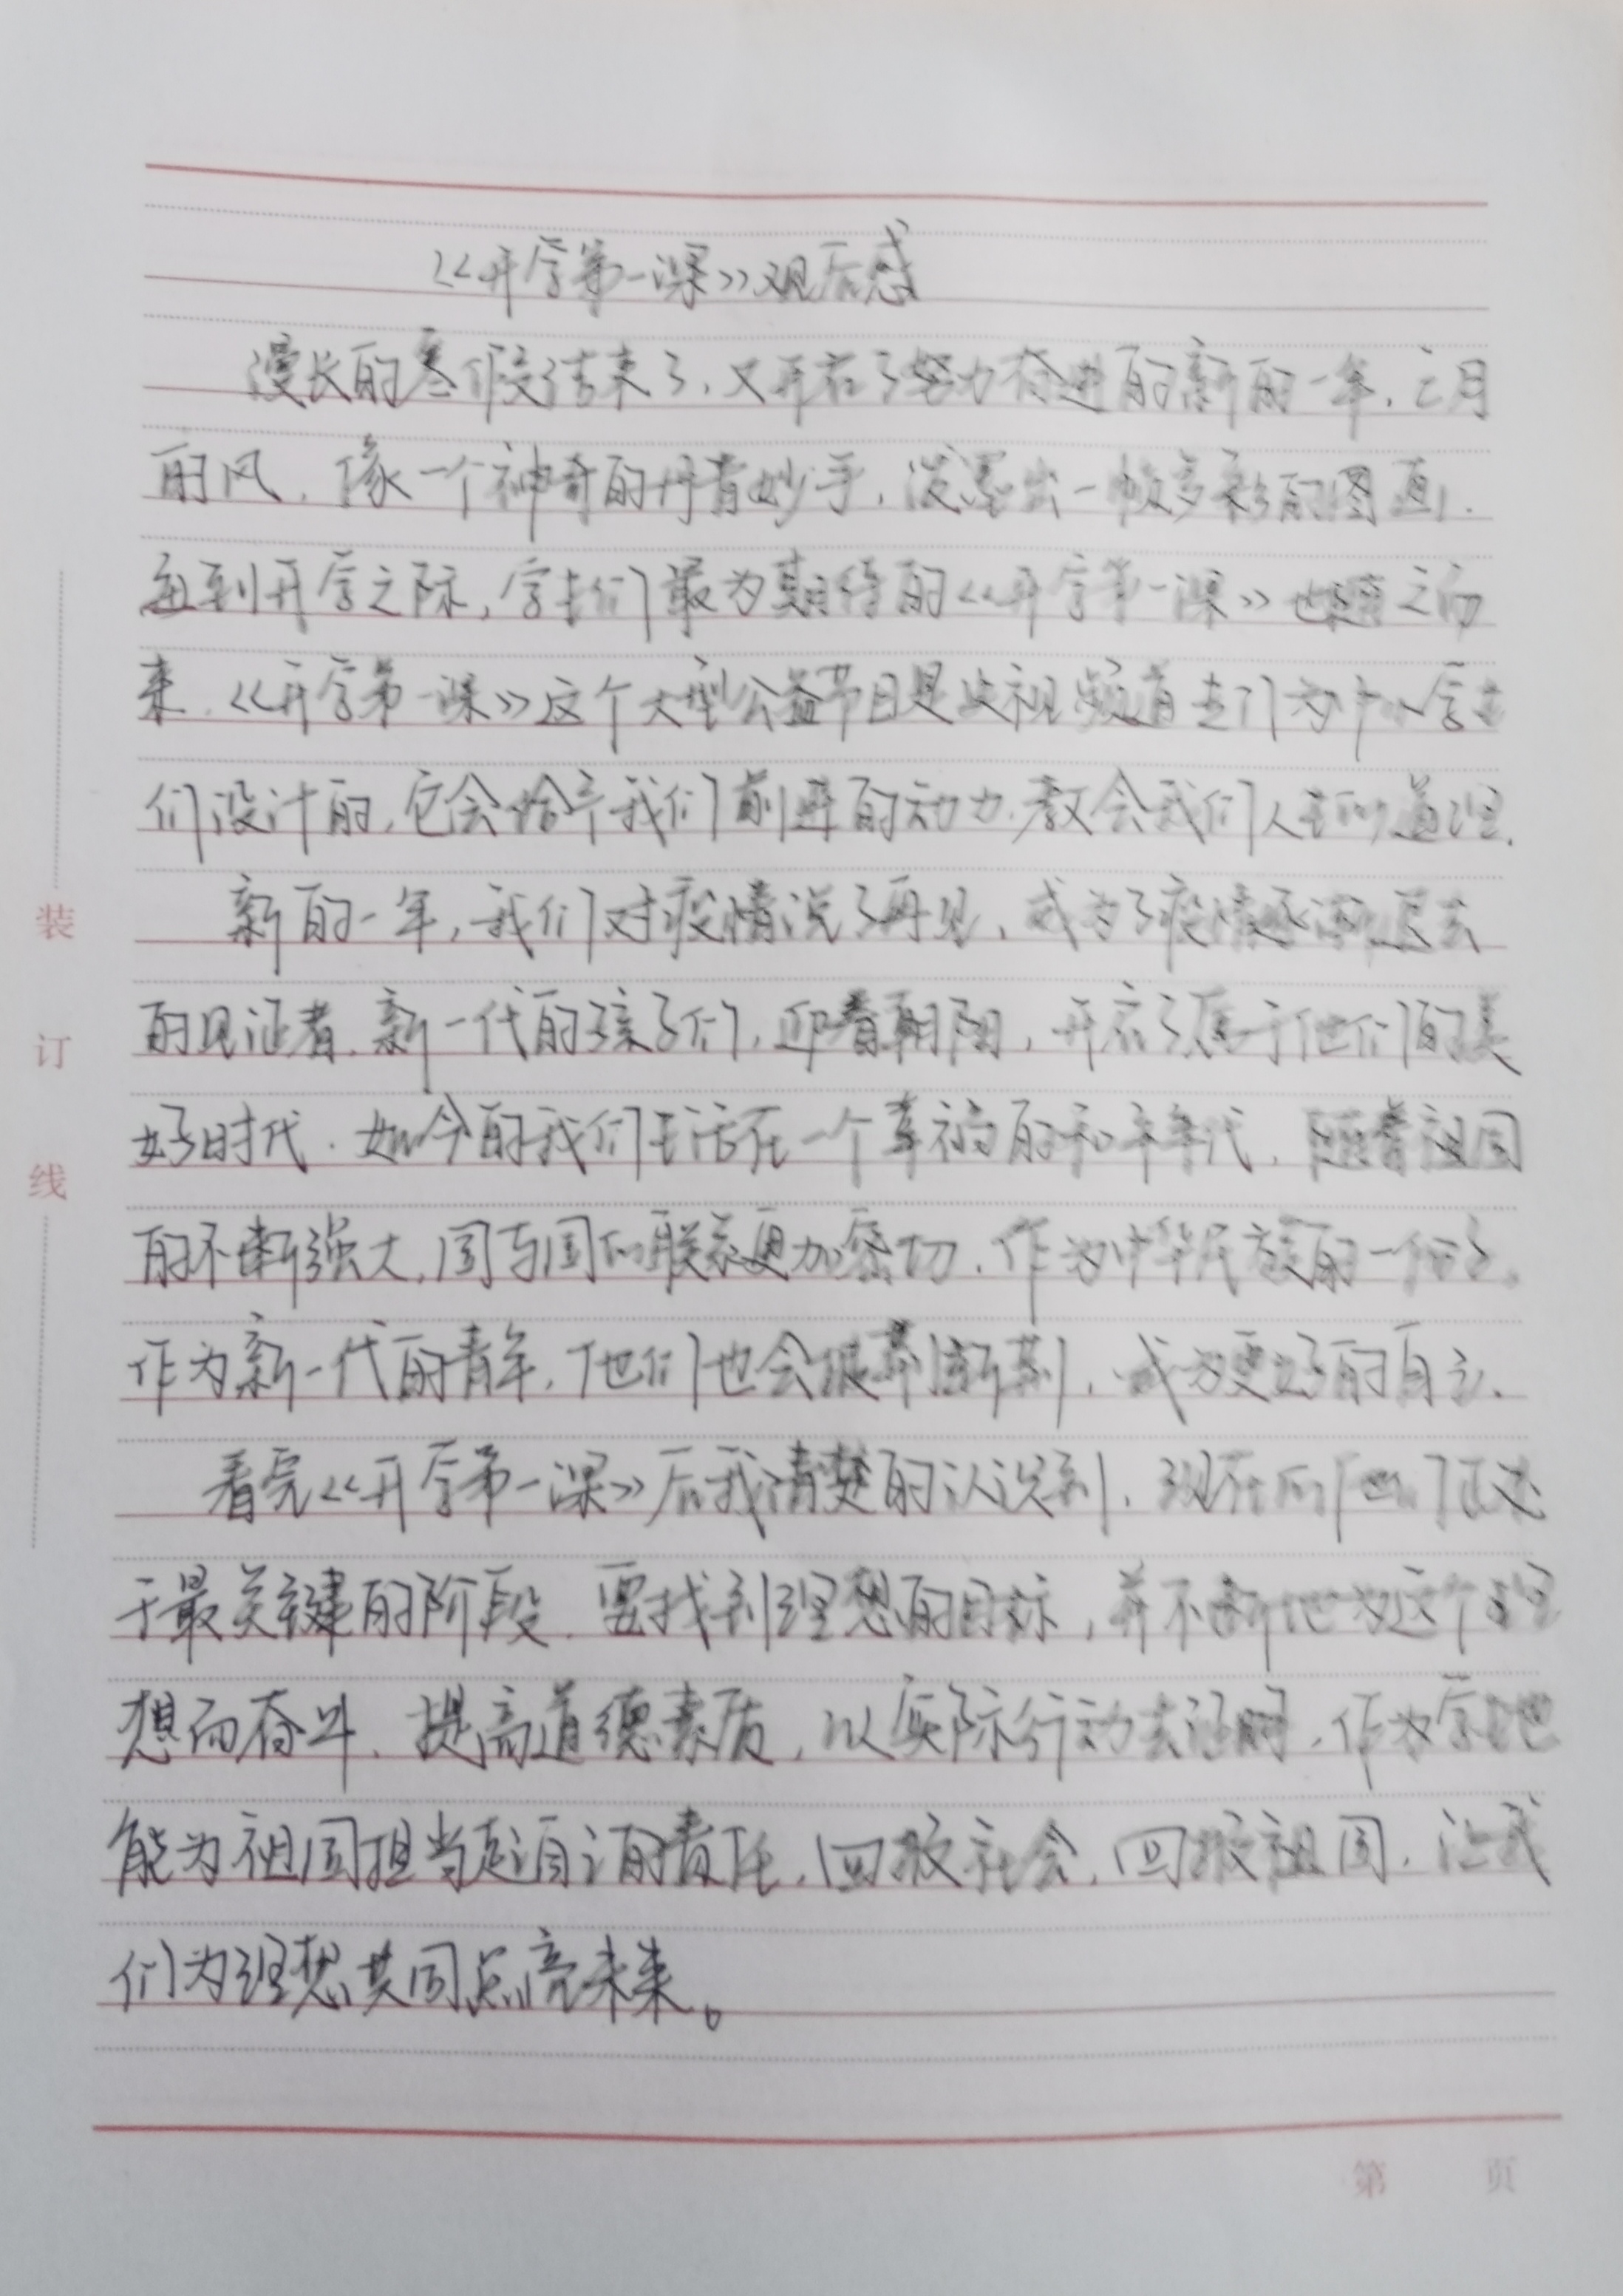 《开学第一课》观后感
漫长的寒假结束了，又开启了努力奋进的新的一年，三月
的风，像一个神奇的丹青妙手，泼墨出一幅多彩的图画，
每到开学之际，学生们最为期待的《开学第一课》也随之而
来，《开学第一课》这个大型公益节目是央视频道专门为中小学生
们设计的，它会给予我们前进的动力，教会我们人生的道理，
新的一年，我们对疫情说了再见，成为了疫情逐渐退去
的见证者，新一代的孩子们，迎着朝阳，开启了属于他们的美
好时代，如今的我们生活在一个幸福的和平年代，随着祖国
的不断强大，国与国的联系更加密切，作为中华民族的一份子，
作为新一代的青年，他们也会披荆斩棘，成为更好的自己，
看完《开学第一课》后我清楚的认识到，现在的他们正处
于最关键的阶段，要找到理想的目标，并不断地为这个理
想而奋斗，提高道德素质，以实际行动去证明，作为学生也
能为祖国担当起自己的责任，回报社会，回报祖国，让我
们为理想共同点亮未来。
装
订
线
第 页